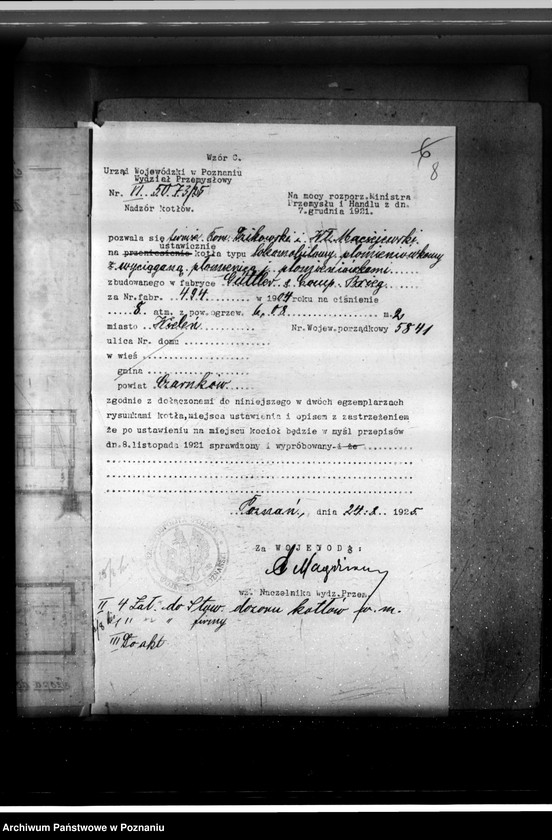 Wzór C.
6
8
Urząd Wojewódzki w Poznaniu
Wydział Przemysłowy
Nr. VI. 50.73/25
Nadzór kotłów.
Na mocy rozporz. Ministra
Przemysłu i Handlu z dn.
7.grudnia 1921.
pozwala się firmie Tow. Dzikowski i Wł. Maciejewski
ustawicznie
na przeniesienie kotła typu lokomobilowy płomieniówkowy
z wyciąganą płomienicą i płomieniówkami
zbudowanego w fabryce & Comp. Brieg
za Nr.fabr. 494 w 1904 roku na ciśnienie
8 atm. z pow.ogrzew. 6,08 m.2
miasto Wieleń Nr.Wojew.porządkowy 5841
ulica Nr. domu
w wieś
gmina
powiat Czarnków
zgodnie z dołączonemi do niniejszego w dwóch egzemplarzach
rysunkami kotła,miejsca ustawienia i opisem z zastrzeżeniem
że po ustawieniu na miejscu kocioł będzie w myśl przepisów
dn.8.listopada 1921 sprawdzony i wypróbowany.i że
Poznań, dnia 24.8. 1925
Za WOJEWODĘ:
wz. Naczelnika Wydz.Przem.
II 4 Zał. do Stow. dozoru kotłów w m.
" " " firmy
III Do akt
Archiwum Państwowe w Poznaniu